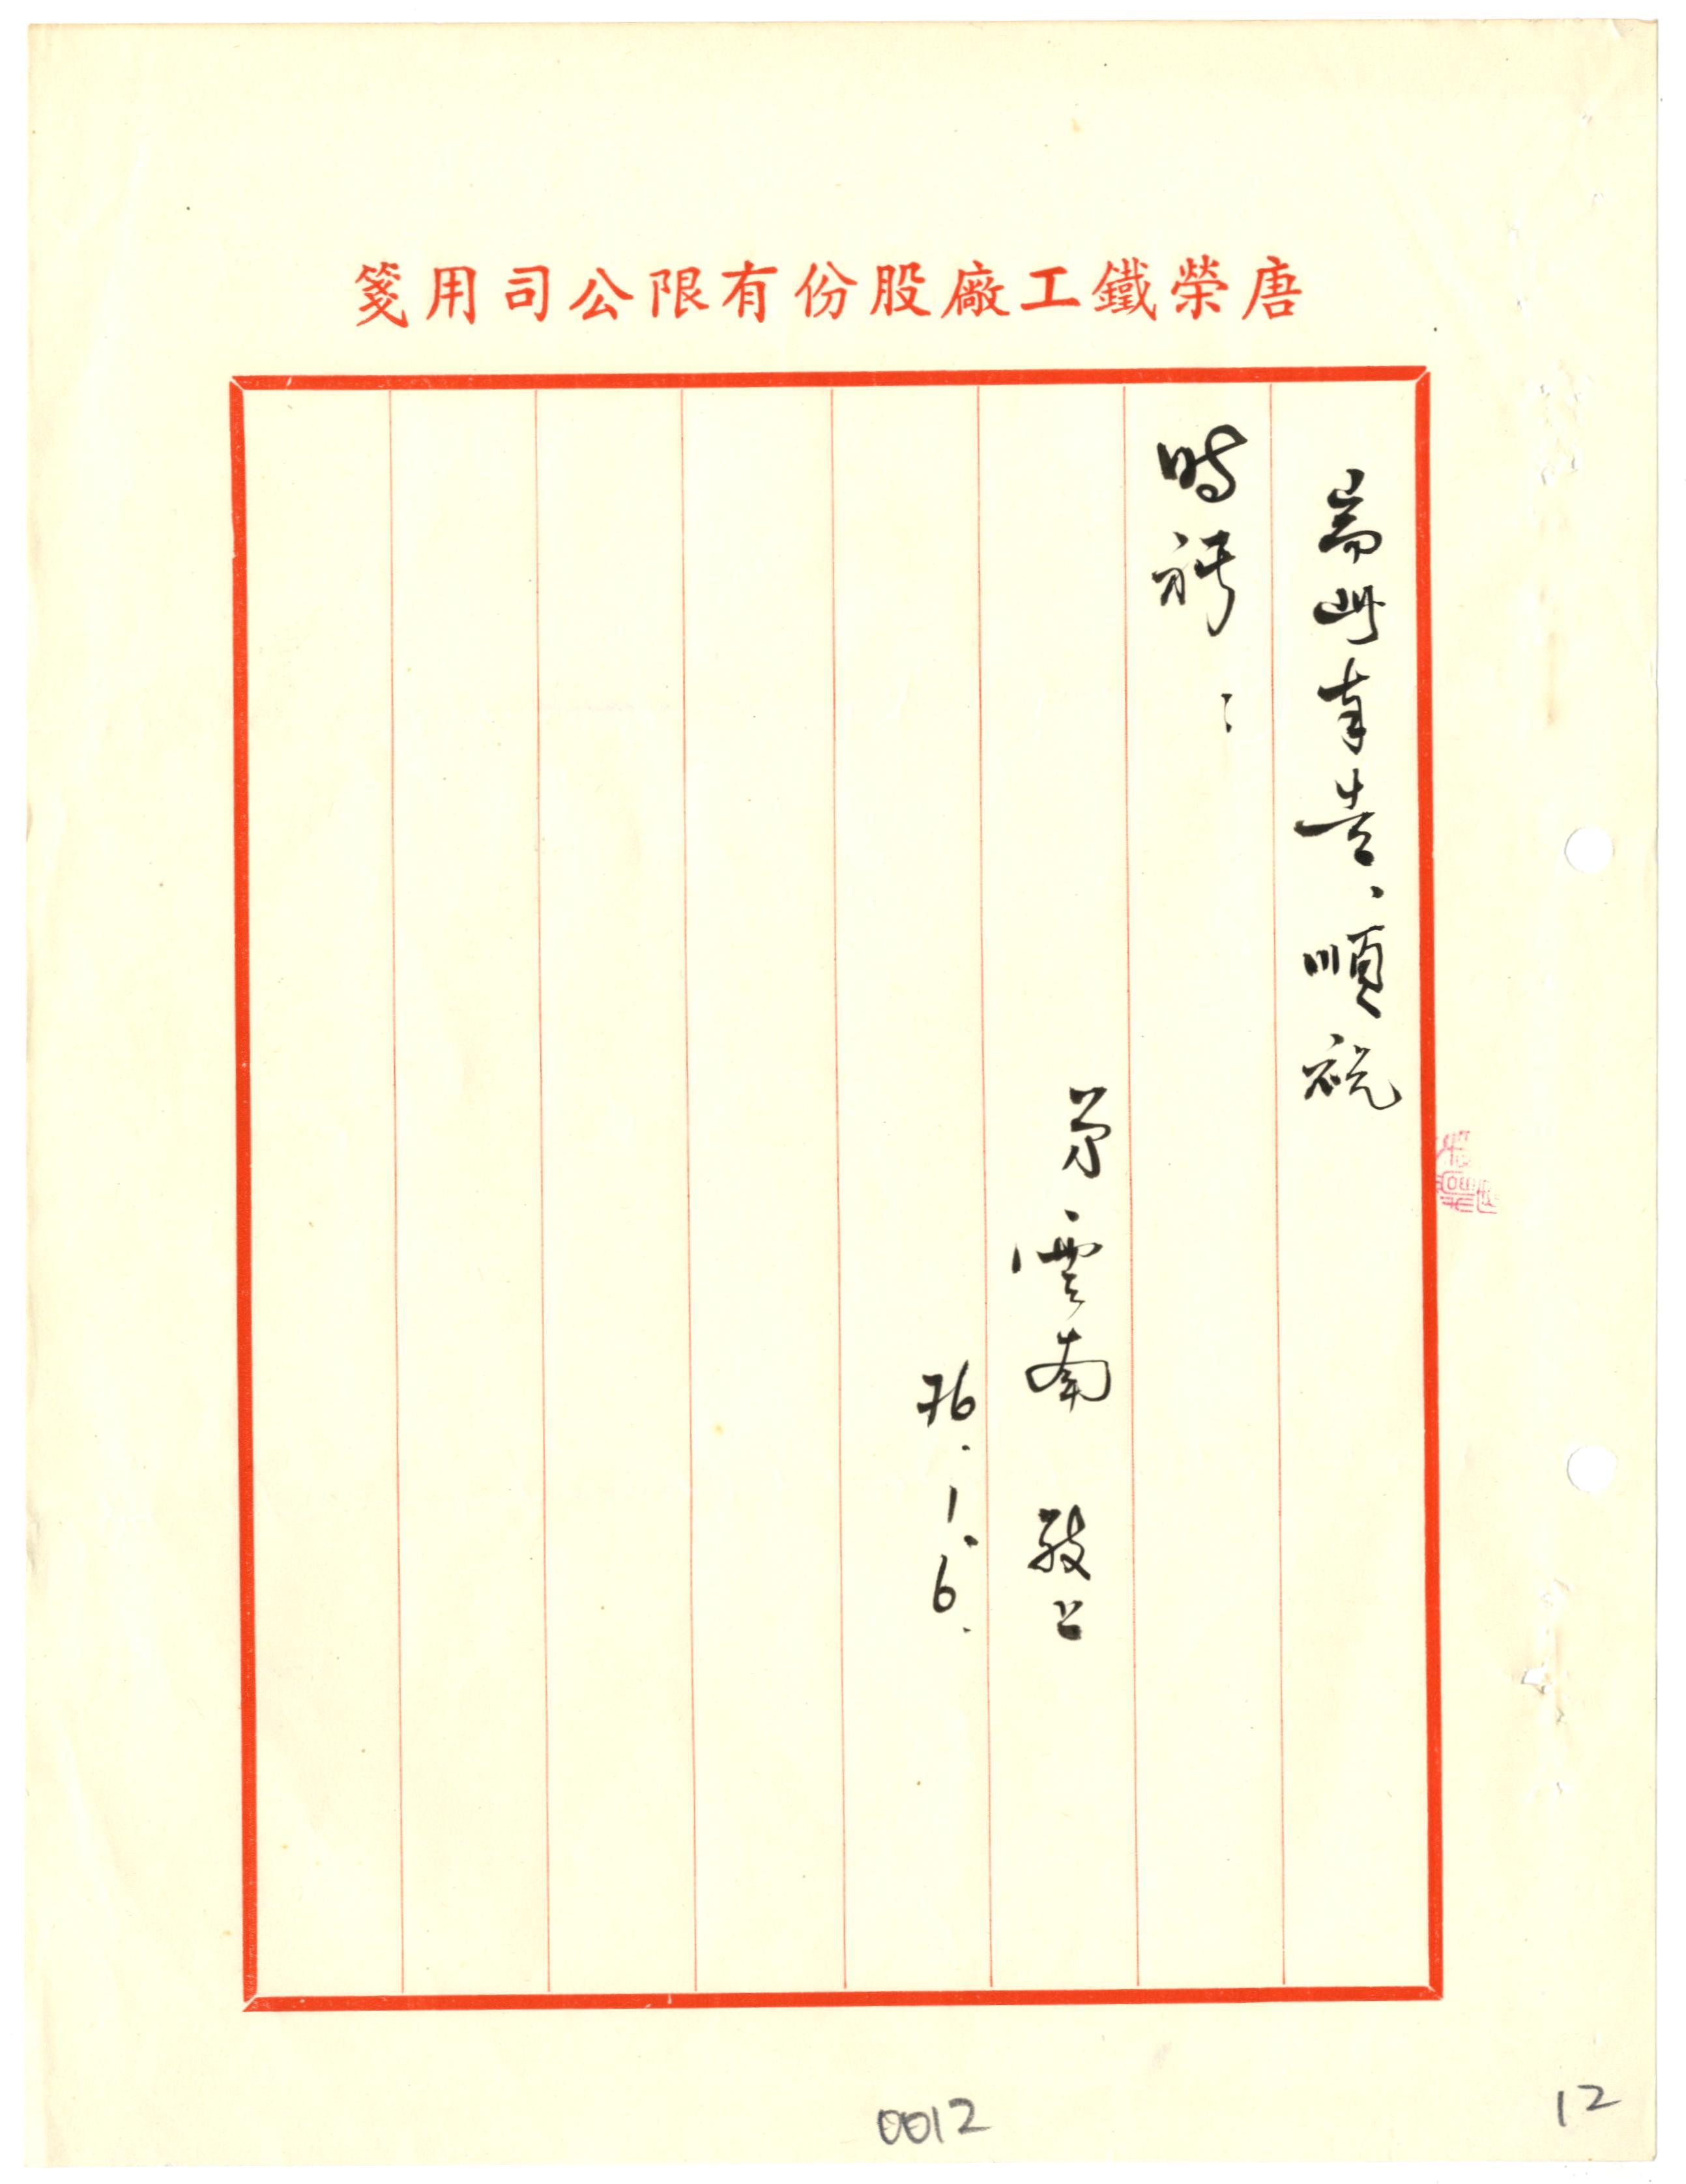 唐榮鐵工廠股份有限公司用箋
耑此奉告、順祝
時祺：
弟雲南 敬上
76.1.6.
0012
12